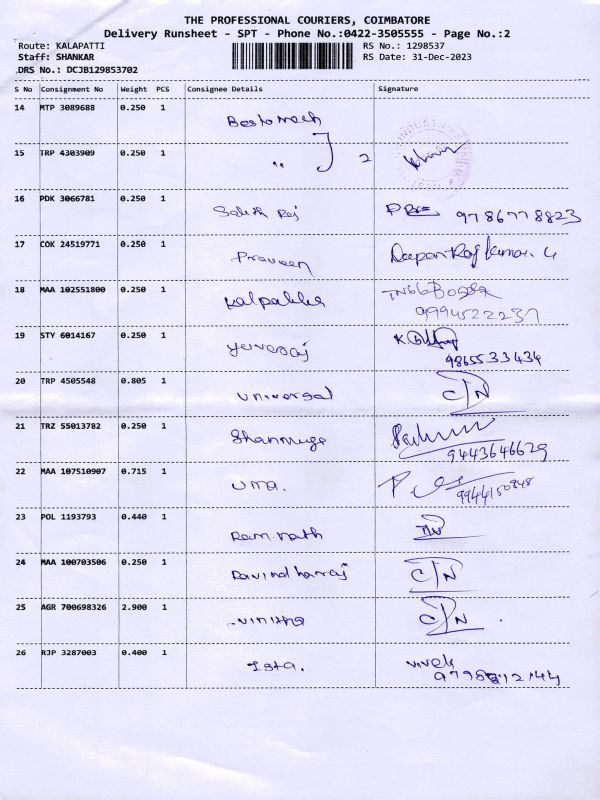 THE PROFESSIONAL COURIERS, COIMBATORE
Delivery Runsheet - SPT - Phone No.:0422-3505555 - Page No.:2
Route: KALAPATTI RS No.: 1298537
Staff: SHANKAR RS Date: 31-Dec-2023
DRS No.: DCJB129853702
S No Consignment No Weight PCS Consignee Details Signature
14 MTP 3089688 0.250 1 Bestomech
15 TRP 4303909 0.250 1 " 2
16 PDK 3066781 0.250 1 Raj 9786778823
17 COK 24519771 0.250 1 Praveen
18 MAA 102551800 0.250 1 Kalpakka 9994522237
19 STY 6014167 0.250 1 Yuvaraj 9865533434
20 TRP 4505548 0.805 1 Universal C/N
21 TRZ 55013782 0.250 1 Shanmuga 9443646629
22 MAA 107510907 0.715 1 Uma. 9944150848
23 POL 1193793 0.440 1 Ram nath
24 MAA 100703506 0.250 1 Ravindharraj C/N
25 AGR 700698326 2.900 1 Vinitha C/N
26 RJP 3287003 0.400 1 Vivek